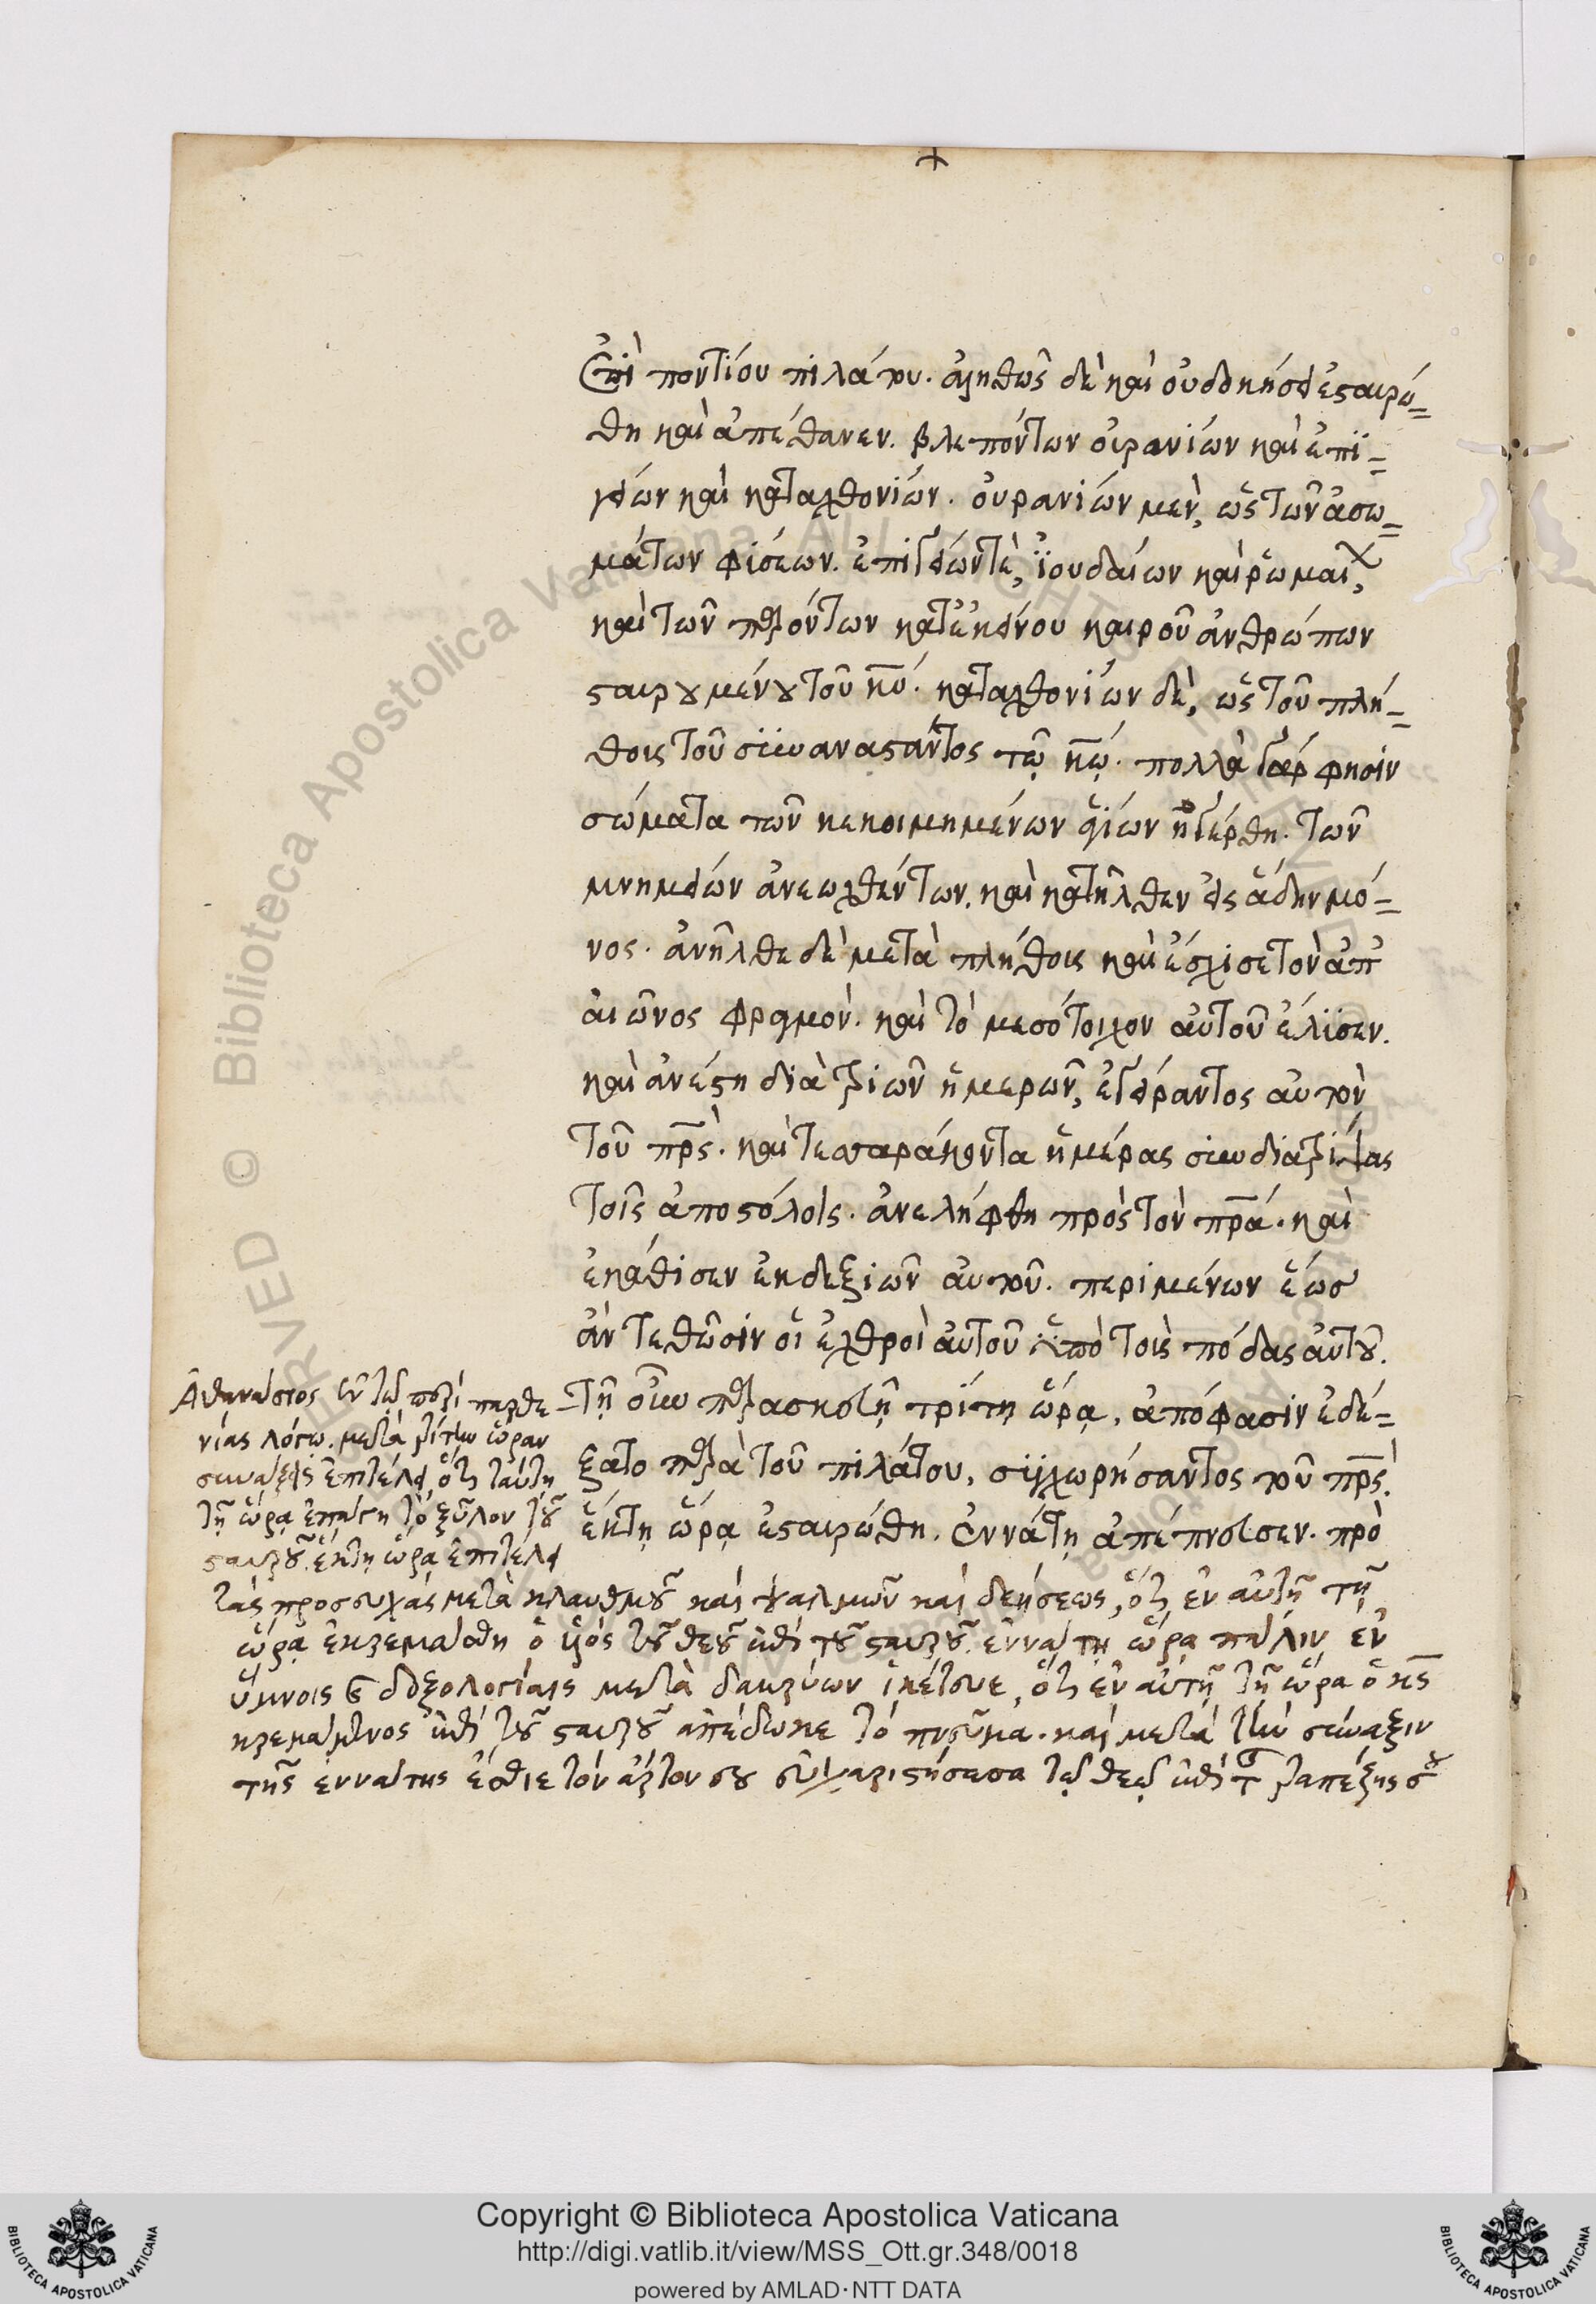 ἐπὶ ποντίου πιλάτου. ἀληθῶς δὲ καὶ οὐ δοκήσει ἐσταυρώ=
θη καὶ ἀπέθανεν. βλεπόντων οὐρανίων καὶ ἐπι=
γείων καὶ καταχθονίων. οὐρανίων μὲν, ὡς τῶν ἀσω=
μάτων φύσεων. ἐπιγείων τὲ, ἰουδαίων καὶ ῥωμαί,
καὶ τῶν παρόντων κατ' ἐκείνου καιροῦ ἀνθρώπων
σταυρουμένου τοῦ κυ. καταχθονίων δὲ, ὡς τοῦ πλή=
θους τοῦ συναναστάντος τῷ κω. πολλὰ γάρ φησιν
σώματα τῶν κεκοιμημένων ἁγίων ἠγέρθη. τῶν
μνημείων ἀνεωχθέντων. καὶ κατῆλθεν εἰς ἅδην μό=
νος. ἀνῆλθε δὲ μετὰ πλήθους καὶ ἔσχισε τὸν ἀπ'
αἰῶνος φραγμόν. καὶ τὸ μεσότοιχον αὐτοῦ ἔλυσεν.
καὶ ἀνέστη διὰ τριῶν ἡμερῶν, ἐγείραντος αὐτὸν
τοῦ πρς. καὶ τεσσαράκοντα ἡμέρας συνδιατρίψας
τοῖς ἀποστόλοις. ἀνελήφθη πρὸς τὸν πρα. καὶ
ἐκάθισεν ἐκ δεξιῶν αὐτοῦ. περιμένων ἕως
ἂν τεθῶσιν οἱ ἐχθροὶ αὐτοῦ ὑπὸ τοὺς πόδας αὐτοῦ.
τῇ οὖν παρασκευῇ τρίτῃ ὥρᾳ, ἀπόφασιν ἐδέ=
ξατο παρὰ τοῦ πιλάτου, συγχωρήσαντος τοῦ πρς.
ἕκτῃ ὥρᾳ ἐσταυρώθη. ἐννάτῃ ἀπέπνευσεν. πρὸ
Ἀθανάσιος ἐν τῷ περὶ παρθε
νίας λόγω. μετὰ τρίτην ὥραν
συνάξεις ἐπιτέλει, ὅτι ταύτῃ
τῇ ὥρᾳ ἐπάγη τὸ ξύλον τοῦ
σταυροῦ. ἕκτῃ ὥρᾳ ἐπιτέλει
τὰς προσευχὰς μετὰ κλαυθμοῦ καὶ ψαλμῶν καὶ δεήσεως, ὅτι ἐν αὐτῇ τῇ
ὥρᾳ ἐκρεμάσθη ὁ υἱὸς τοῦ θεοῦ ἐπὶ τοῦ σταυροῦ. ἐννάτῃ ὥρᾳ πάλιν ἐν
ὕμνοις καὶ δοξολογίαις μετὰ δακρύων ἱκέτευε, ὅτι ἐν αὐτῇ τῇ ὥρᾳ ὁ κς
κρεμάμενος ἐπὶ τοῦ σταυροῦ ἀπέδωκε τὸ πνεῦμα. καὶ μετὰ τὴν σύναξιν
τῆς ἐννάτης ἔσθιε τὸν ἄρτον σου εὐχαριστήσασα τῷ θεῷ ἐπὶ τῆς τραπέζης σου
Copyright © Biblioteca Apostolica Vaticana
http://digi.vatlib.it/view/MSS_Ott.gr.348/0018
powered by AMLAD·NTT DATA